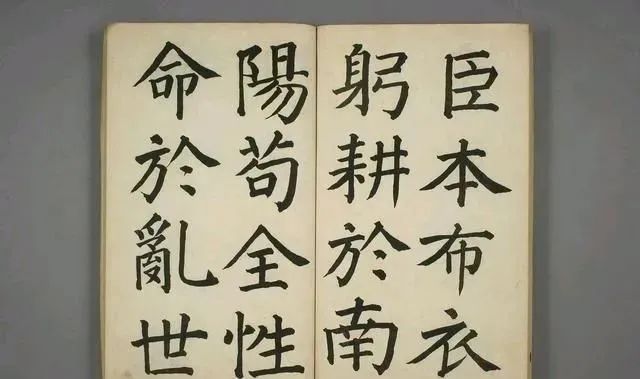 臣本布衣
躬耕於南
陽苟全性
命於亂世